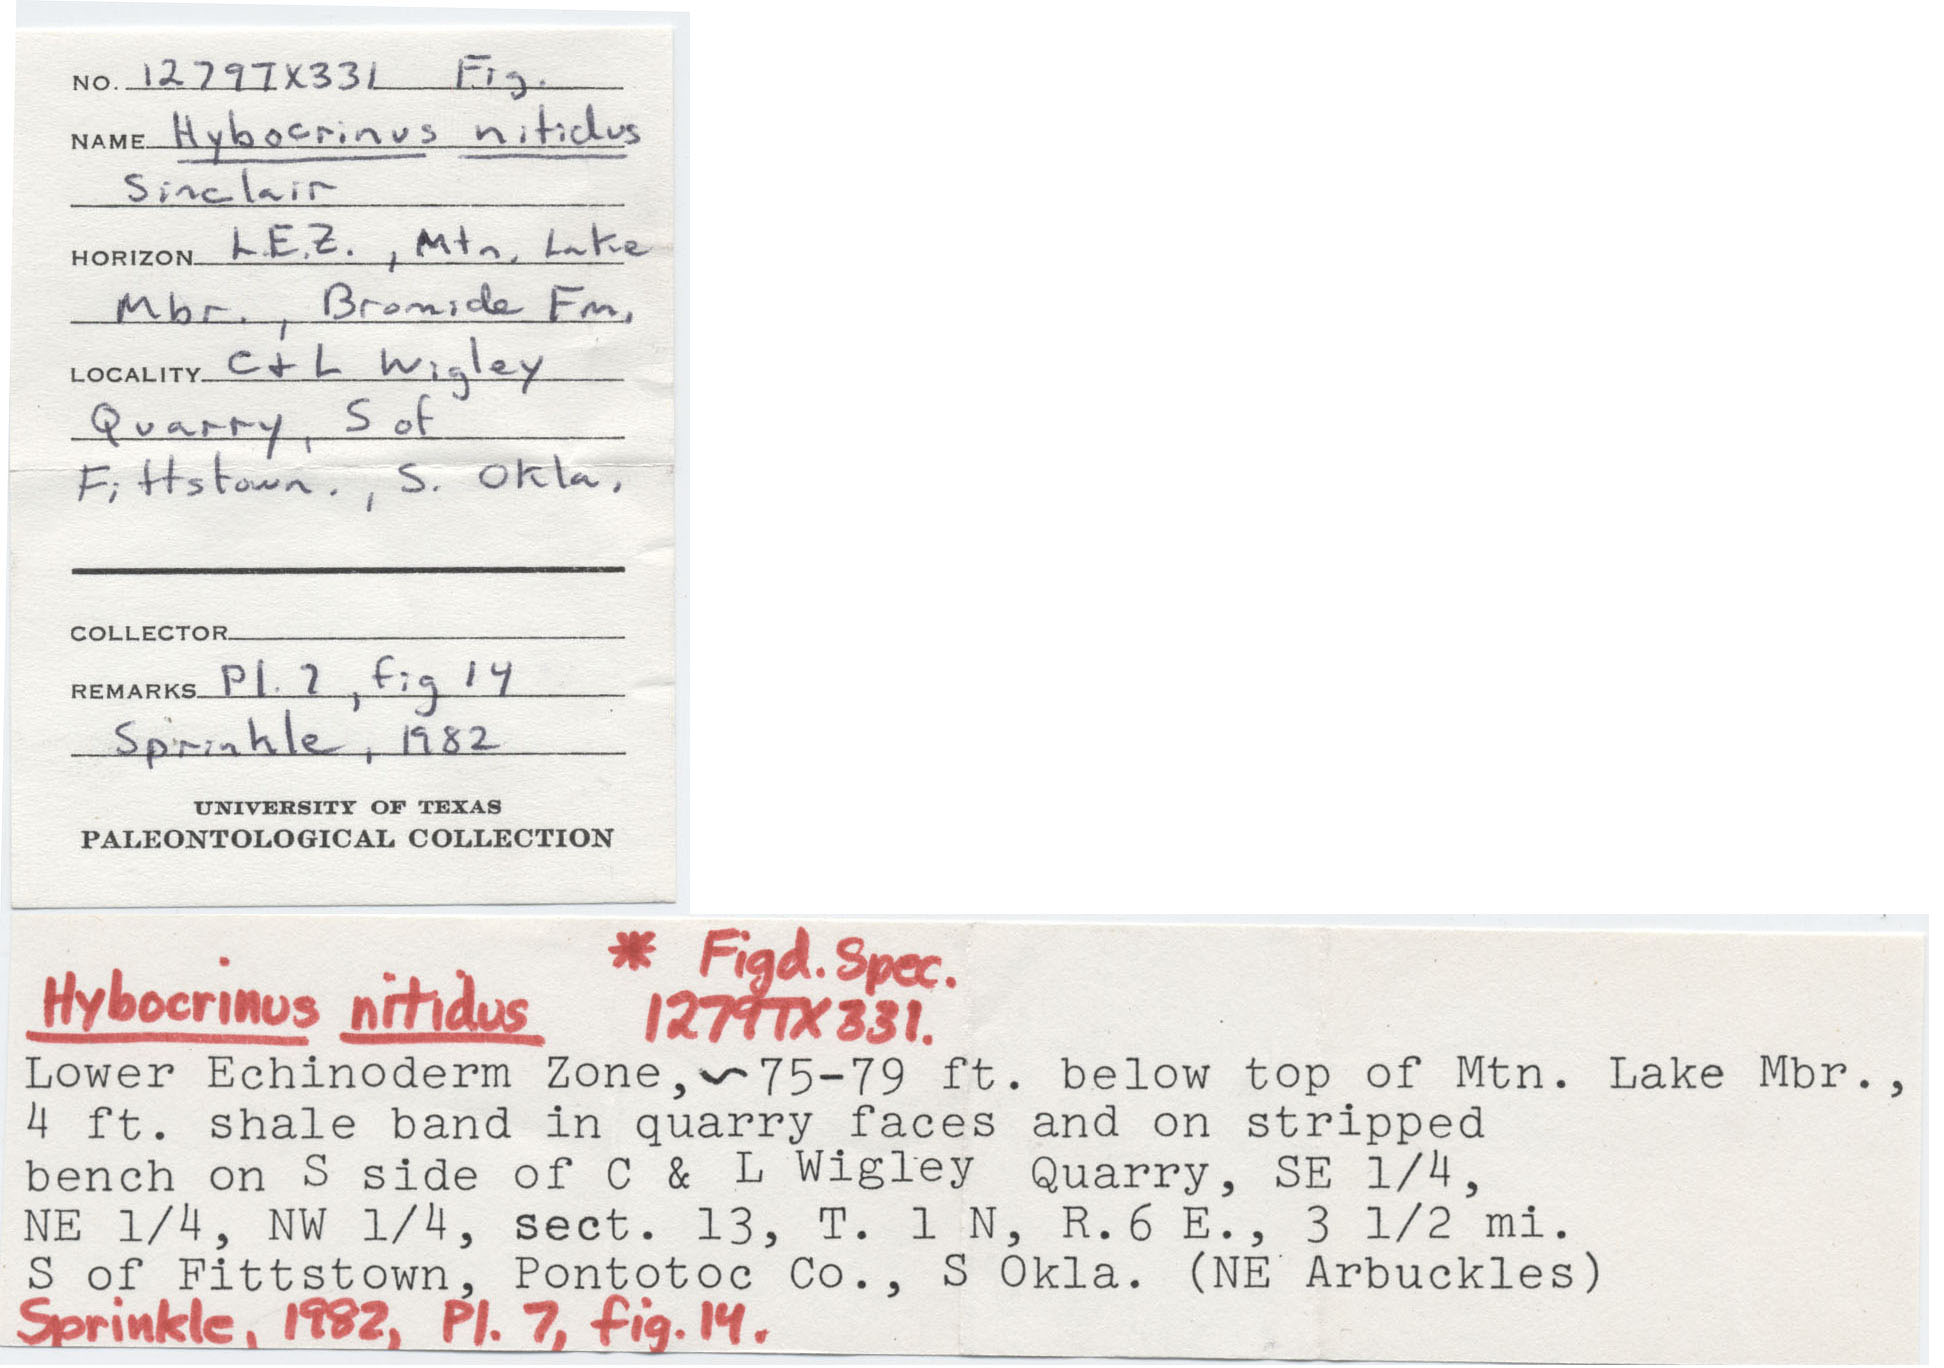 NO. 1279TX331 Fig.
NAME Hybocrinus nitidus
Sinclair
HORIZON L.E.Z., Mtn. Lake
Mbr., Bromide Fm.
LOCALITY C + L Wigley
Quarry, S of
Fittstown., S. Okla.
COLLECTOR
REMARKS Pl. 7, fig 14
Sprinkle, 1982
UNIVERSITY OF TEXAS
PALEONTOLOGICAL COLLECTION
* Figd. Spec.
Hybocrinus nitidus 1279TX331.
Lower Echinoderm Zone, ~75-79 ft. below top of Mtn. Lake Mbr.,
4 ft. shale band in quarry faces and on stripped
bench on S side of C & L Wigley Quarry, SE 1/4,
NE 1/4, NW 1/4, sect. 13, T. 1 N, R.6 E., 3 1/2 mi.
S of Fittstown, Pontotoc Co., S Okla. (NE Arbuckles)
Sprinkle, 1982, Pl. 7, fig. 14.